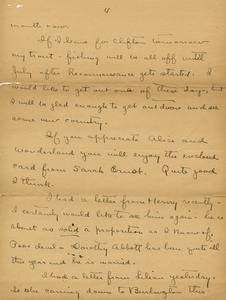 4
month now.
If I leave for Clifton tomorrow
my trout-fishing will be all off until
July after Reconnaissance gets started. I
would like to get out one of these days, but
I will be glad enough to get outdoors and see
some new country.
If you appreciate Alice and
Wonderland you will enjoy the enclosed
card from Sarah Ernst. Quite good
I think.
I had a letter from Henry recently -
I certainly would like to see him again - he is
about as solid a proposition as I know of.
Poor devil - Dorothy Abbott has been quite ill
this year and he is worried.
I had a letter from Lilian yesterday.
Is she coming down to Burlington this